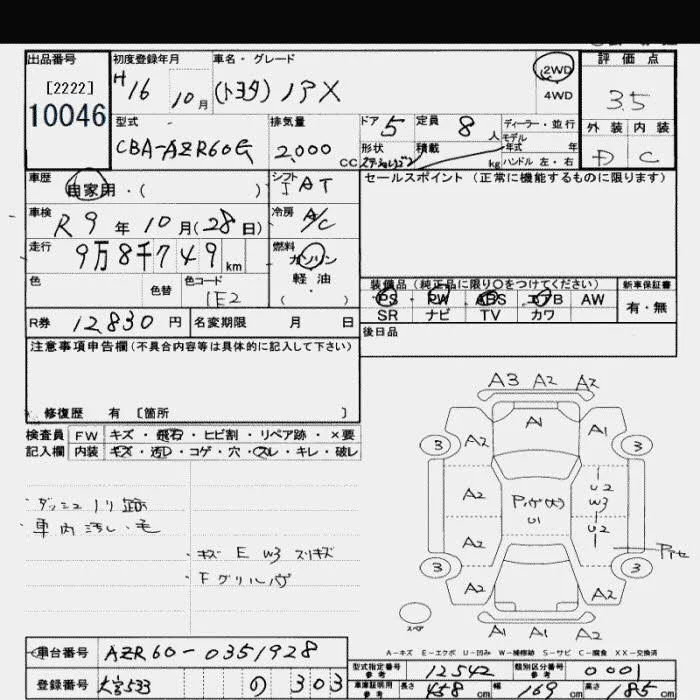 出品番号
[2222]
10046
初度登録年月
H16 10月
車名・グレード
(トヨタ) ノア X
2WD
4WD
評価点
3.5
外装 内装
D C
型式
CBA-AZR60G
排気量
2,000 CC
ドア 5
形状
定員 8 人
積載 kg
ディーラー・並行
モデル
年式 年
ハンドル 左・右
車歴
自家用・( )
シフト
I AT
セールスポイント (正常に機能するものに限ります)
車検
R 9 年 10 月(28 日)
冷房
A/C
走行
9万8千749 km
燃料
ガソリン
軽油
( )
色
色替
色コード
1E2
装備品(純正品に限り○をつけてください)
PS PW ABS エアB AW
SR ナビ TV カワ
新車保証書
有・無
R券 12,830 円
名変期限 月 日
後日品
注意事項申告欄(不具合内容等は具体的に記入して下さい)
修復歴 有 〔箇所 〕
検査員
記入欄
FW キズ・飛石・ヒビ割・リペア跡・×要
内装 キズ・汚れ・コゲ・穴・スレ・キレ・破レ
・ダッシュ ノリ跡
・車内汚レ・毛
・キズ E W3 スリキズ
・Fグリル
A3 A2 A2
A1
A2 A1
3 3
A2 U2
W3
U2
U1
A2
3 3
A2 A2
A1 A1 A2
スペア
A-キズ E-エクボ U-凹み W-補修跡 S-サビ C-腐食 XX-交換済
車台番号 AZR60-0351928
登録番号 大宮533 の 303
型式指定番号
参考
12542
類別区分番号
参考
0001
車庫証明用
参考
長さ 458 cm 幅 169 cm 高さ 185 cm